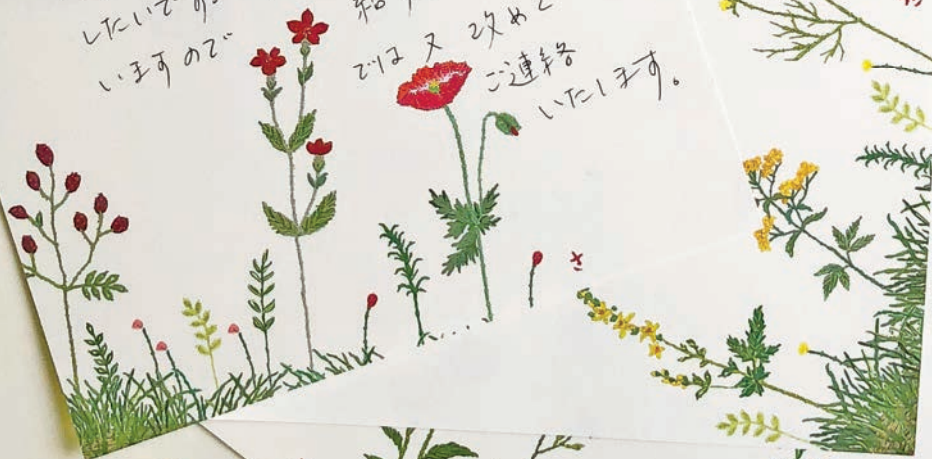 したいです。
いますので
では又 改めて
ご連絡
いたします。